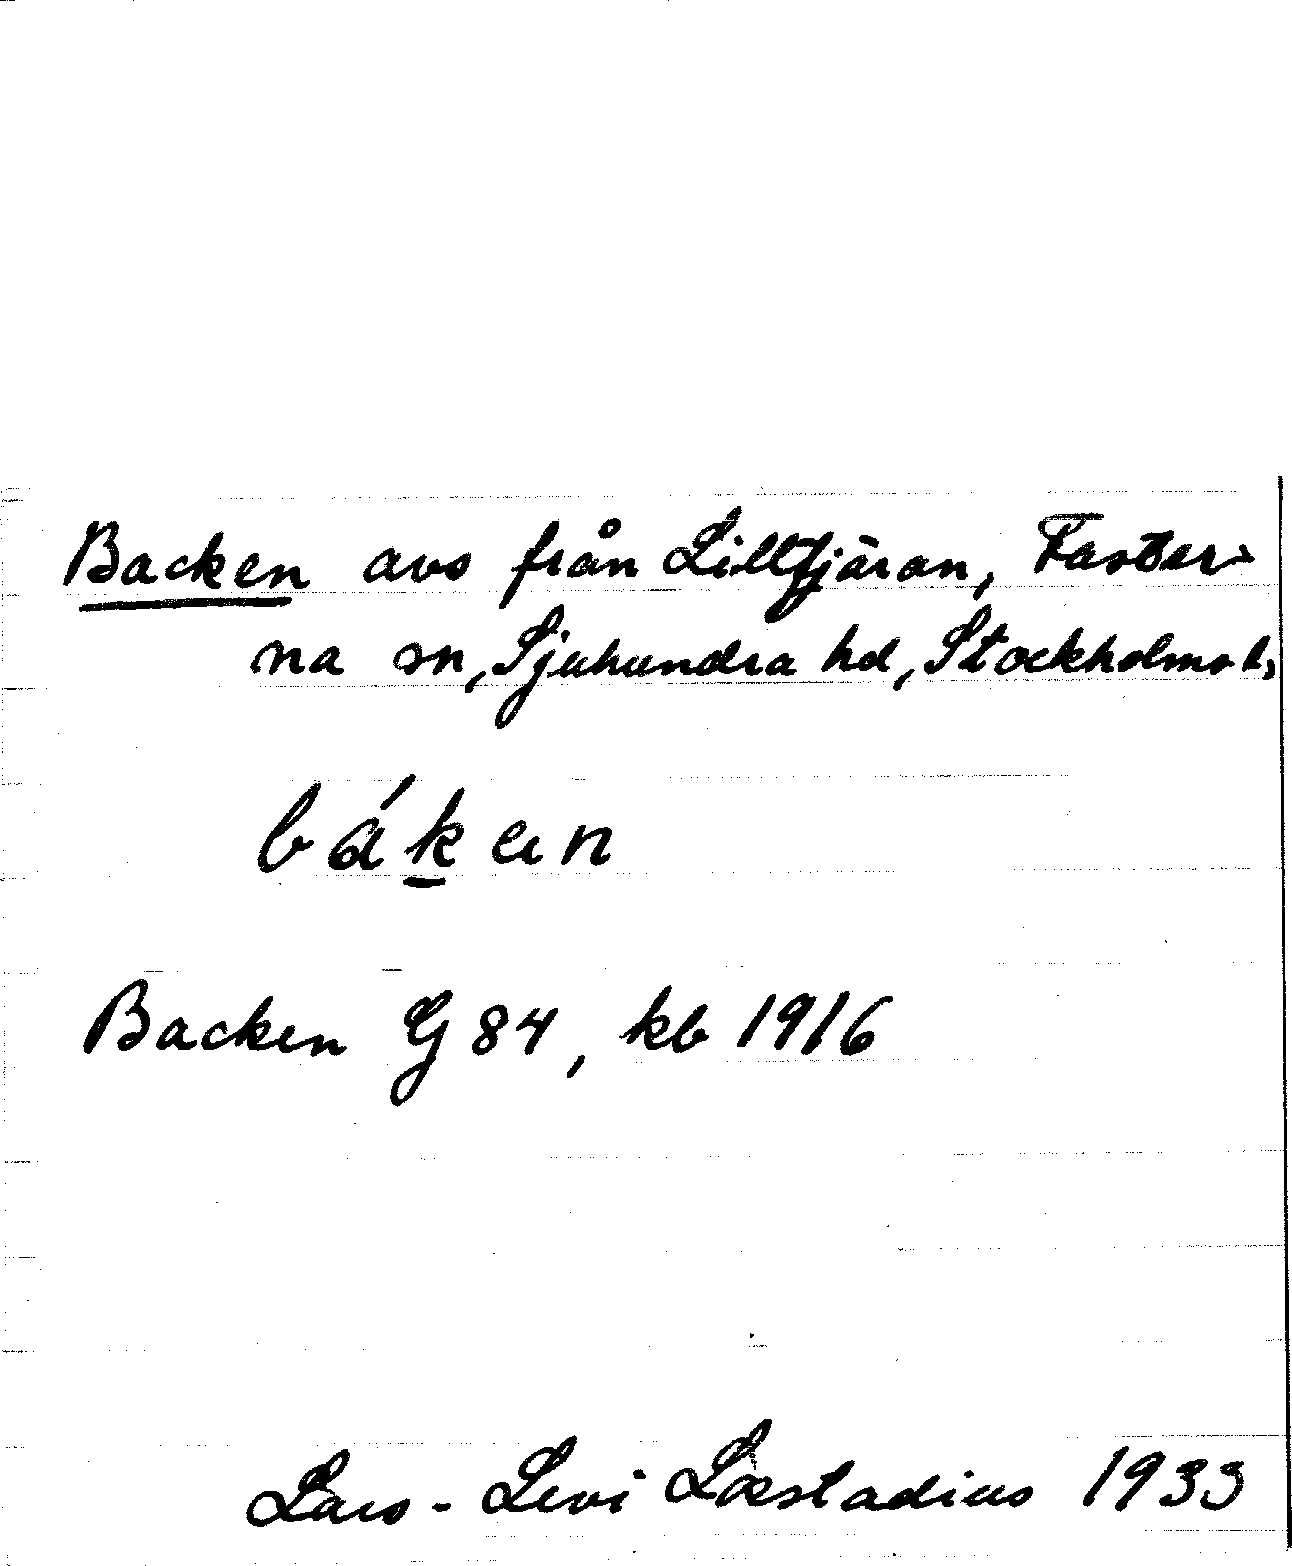 Backen avs från Lilltjäran, Faster-
na sn, Sjuhundra hd, Stockholms l,
bák̲en
Backen G 84, kb 1916
Lars-Levi Læstadius 1933